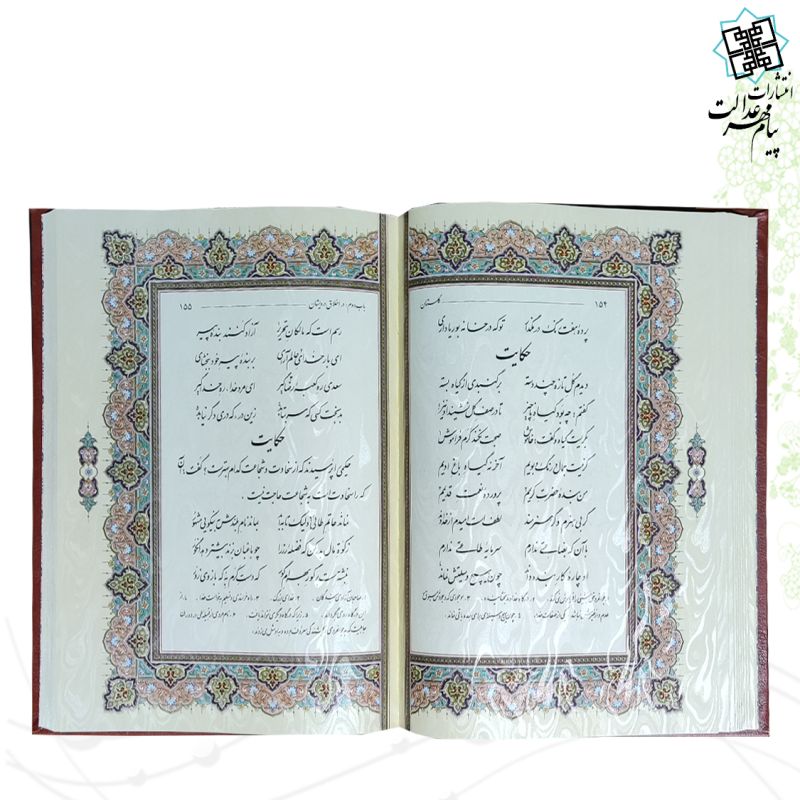 انتشارات
پیام مهر عدالت
۱۵۴ گلستان
پرده هفت رنگ در مگذار تو که در خانه بوریا داری
حکایت
دیدم گل تازه چند دسته بر گنبدی از گیاه بسته
گفتم: چه بود گیاه ناچیز تا در صف گل نشیند او نیز؟
بگریست گیاه و گفت: خاموش صحبت نکند کرم فراموش
گر نیست جمال و رنگ و بویم آخر نه گیاه باغ اویم
من بنده حضرت کریمم پرورده نعمت قدیمم
گر بی هنرم و گر هنرمند لطف است امیدم از خداوند
با آن که بضاعتی ندارم سرمایه طاعتی ندارم
او چاره کار بنده داند چون هیچ وسیلتش نماند
باب دوم: در اخلاق درویشان ۱۵۵
رسم است که مالکان تحریر آزاد کنند بنده پیر
ای بار خدای عالم آرای بر بنده پیر خود ببخشای
سعدی ره کعبه رضا گیر ای مرد خدا، ره خدا گیر
بدبخت کسی که سر بتابد زین در، که دری دگر نیابد
حکایت
حکیمی را پرسیدند که از سخاوت و شجاعت کدام بهتر است؟ گفت: آن
که را سخاوت است به شجاعت حاجت نیست.
نماند حاتم طائی ولیک تا به ابد بماند نام بلندش به نیکویی مشهور
زکوة مال به در کن که فضله رز را چو باغبان بزند بیشتر دهد انگور
نبشته است بر گور بهرام گور که دست کرم به که بازوی زور